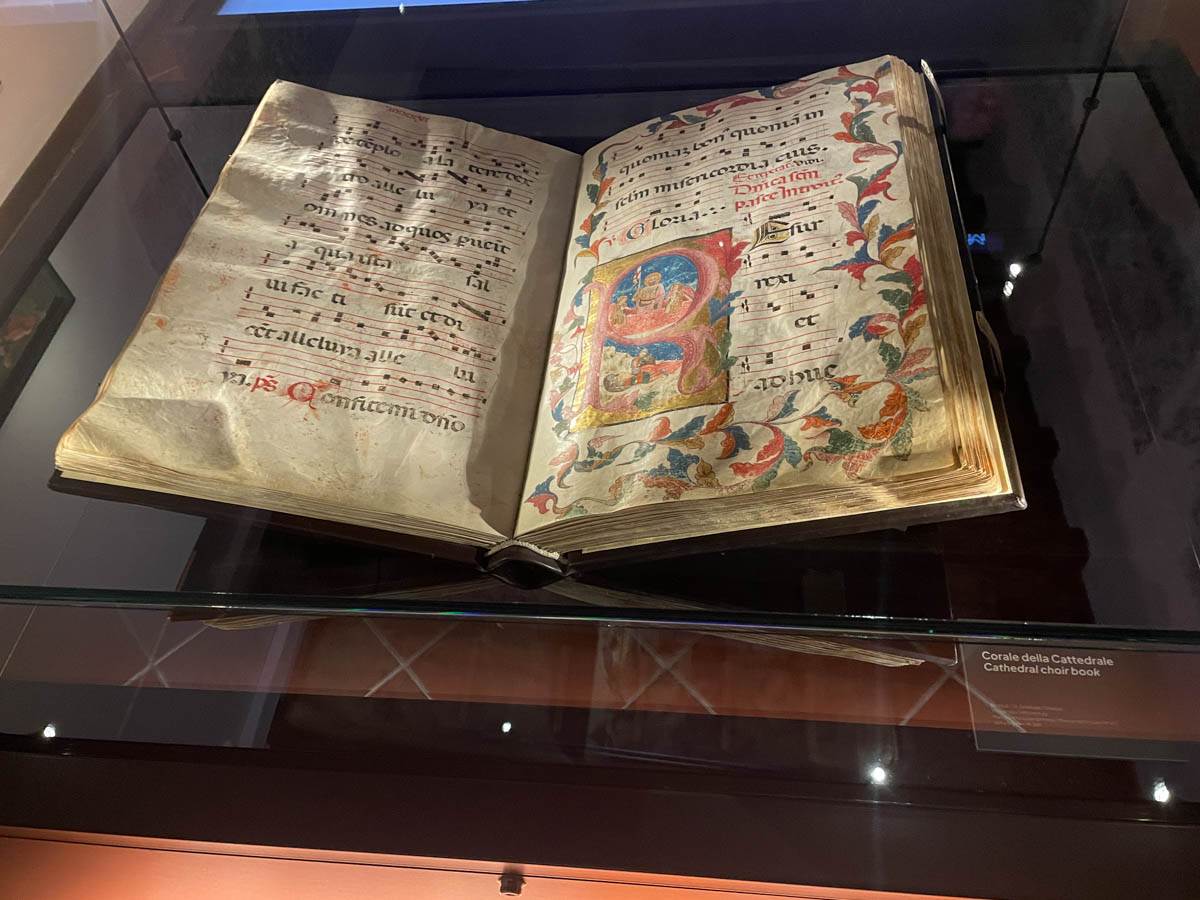 de teplo a la tere dex
tro alle lu ya et
om nes ad quos puenit
a qua ista sal
ui fac ti sut et di
cet alleluya alle lu
ya. ps Confitemi dno
quoniaz bon' quoniā in
sclm misericordia eius.
Dnica scin
pasce Introit'
Gloria
Esur
rexi
et
ad huc
Corale della Cattedrale
Cathedral choir book